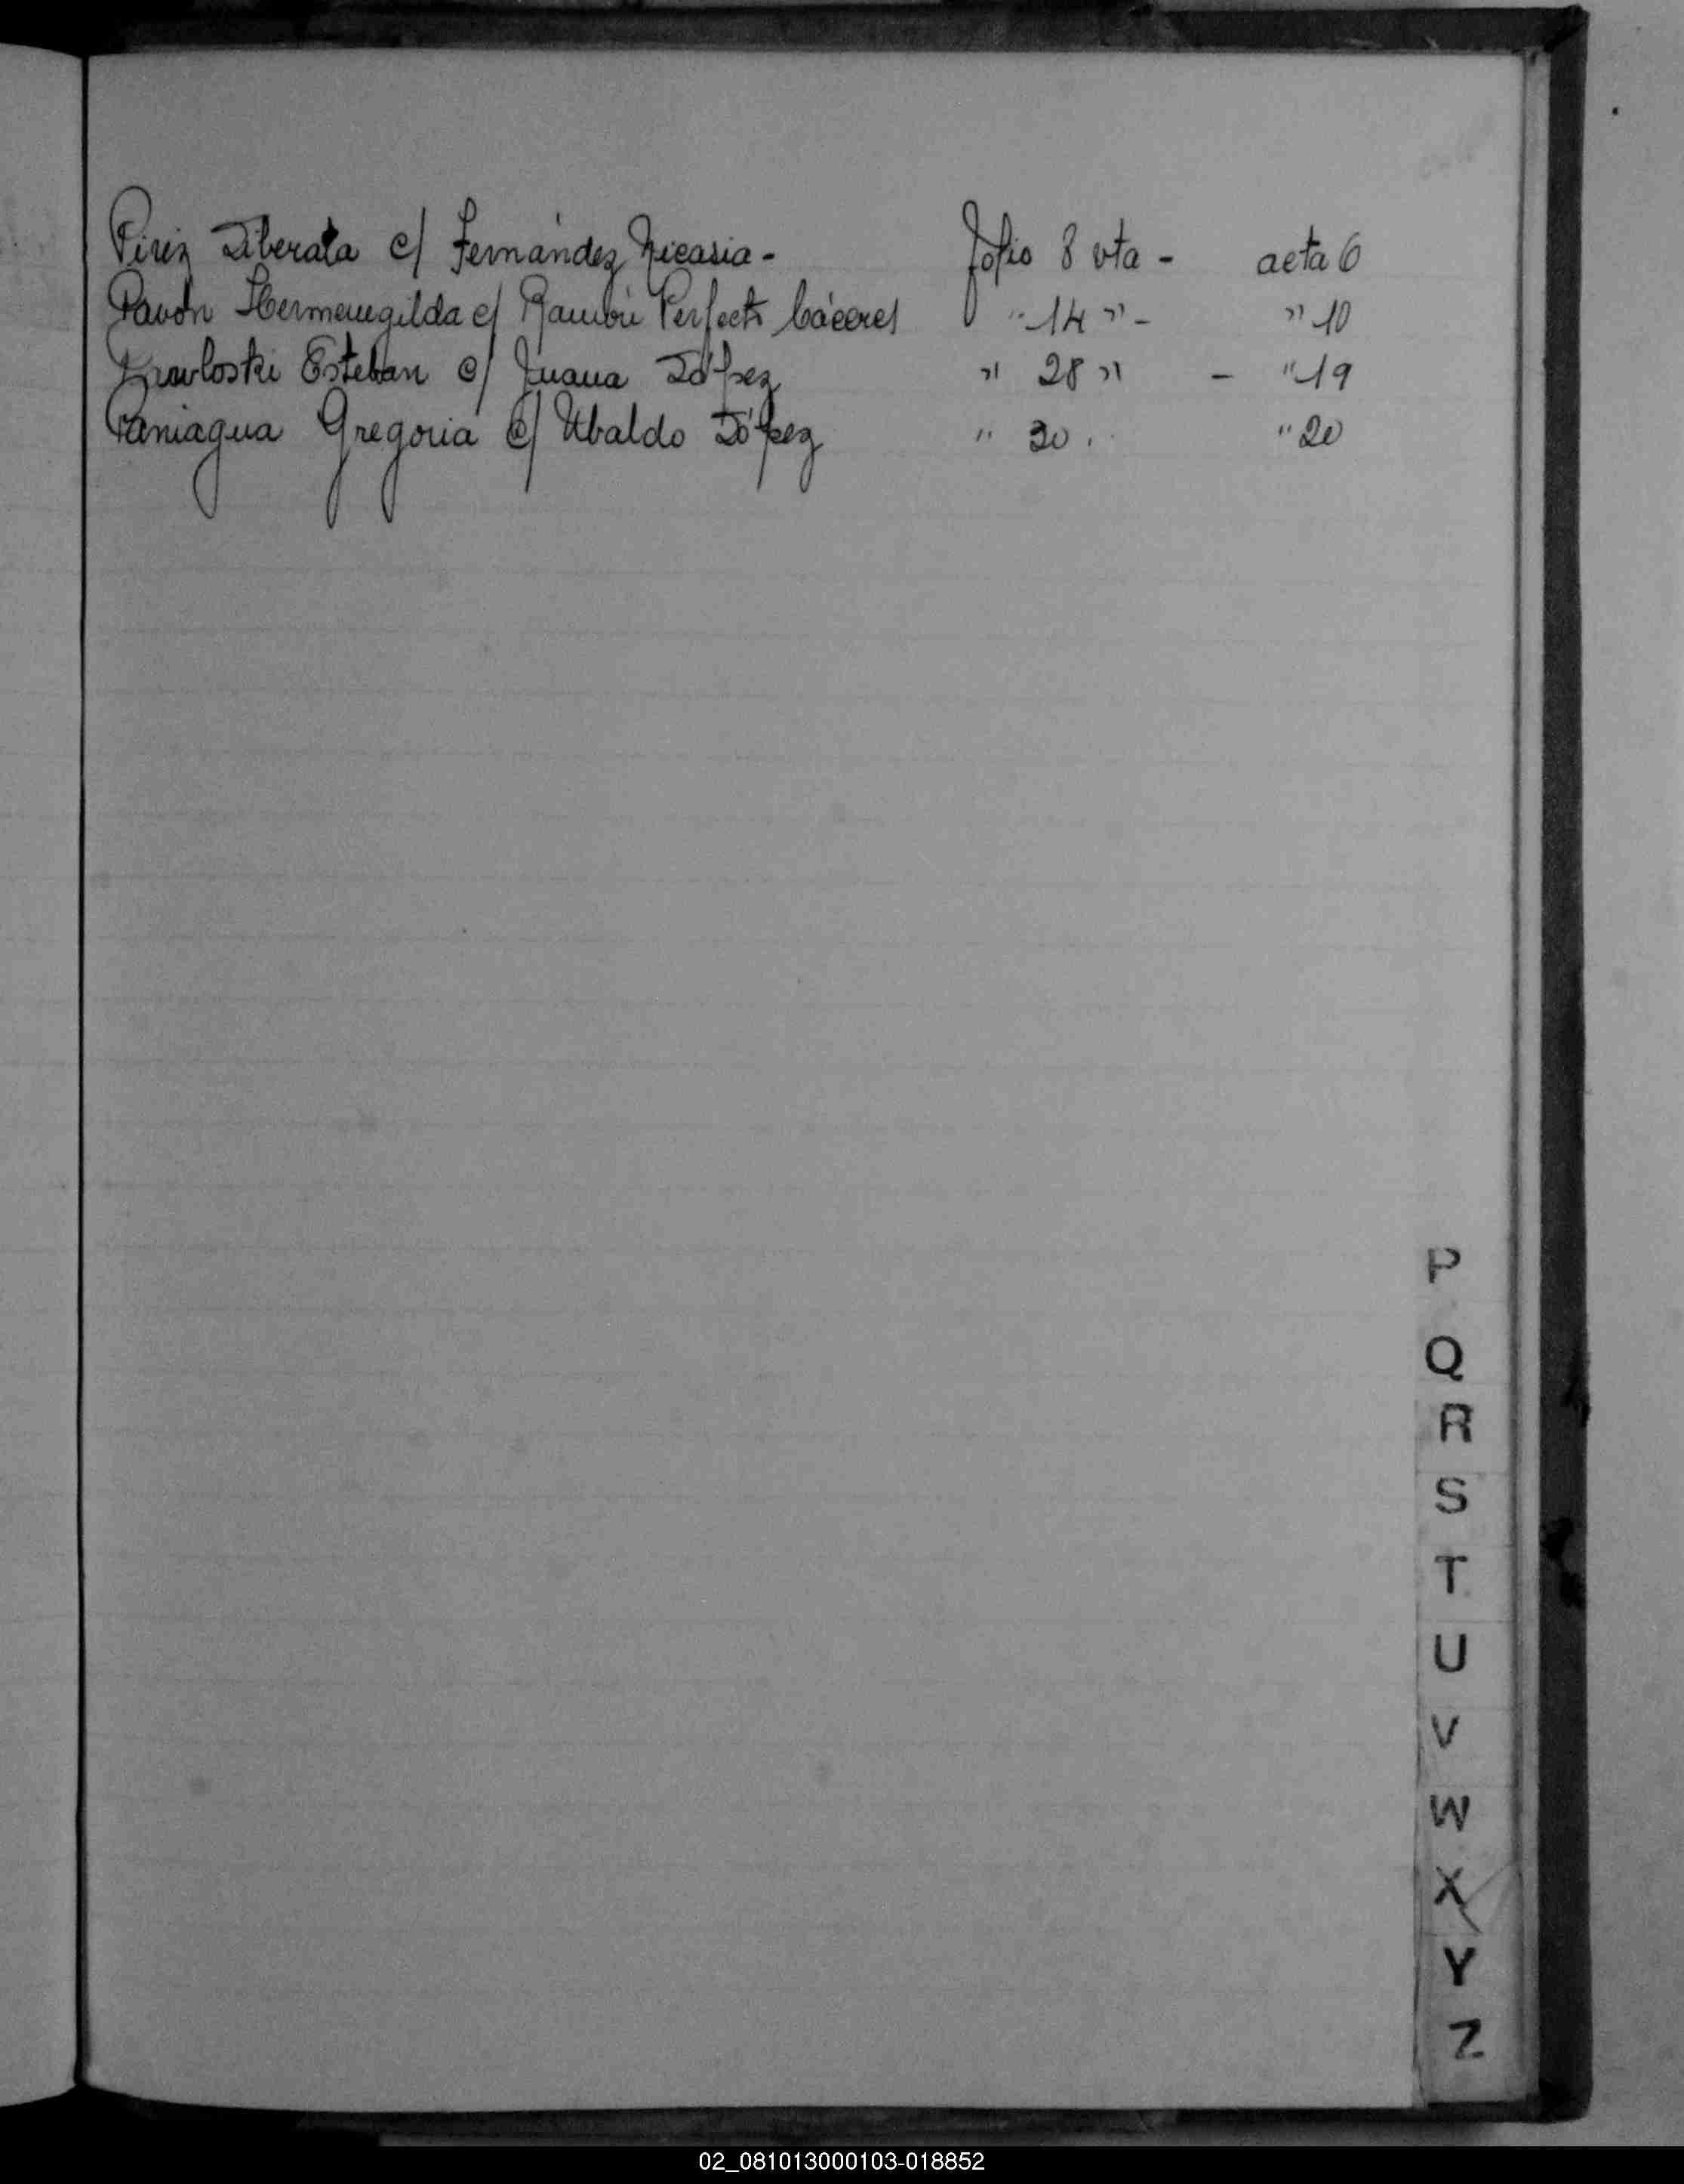 Pirez Liberata c/ Fernández Nicasia - folio 8 vta - acta 6
Pavón Hermenegilda c/ Ramón Perfecto Cáceres " 14 " - " 10
Esteban c/ Juana López " 28 " - " 19
Paniagua Gregoria c/ Ubaldo López " 30 " " 20
P
Q
R
S
T
U
V
W
X
Y
Z
02_081013000103-018852